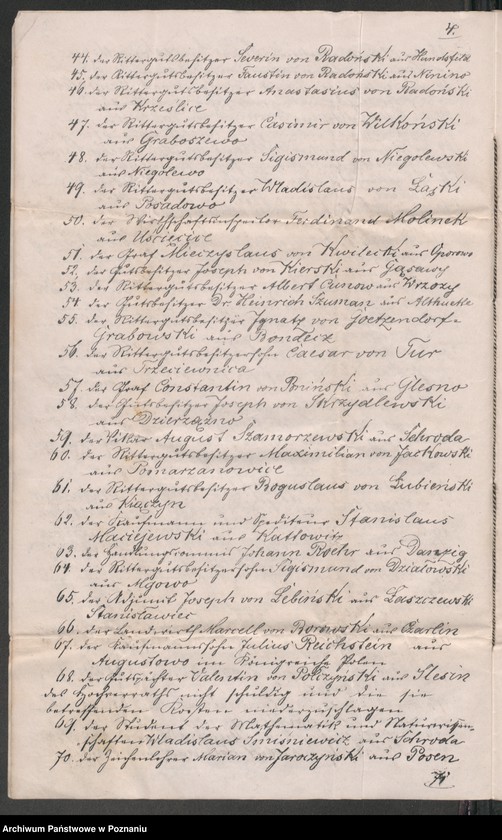 4.
44. der Rittergutsbesitzer Severin von Radoński aus
45. der Rittergutsbesitzer Faustin von Radoński aus Ninino
46. der Rittergutsbesitzer Anastasius von Radoński
aus Krzeslice
47. der Rittergutsbesitzer Casimir von Wilkoński
aus Graboszewo
48. der Rittergutsbesitzer Sigismund von Niegolewski
aus Niegolewo
49. der Rittergutsbesitzer Wladislaus von Łącki
aus Posadowo
50. der Wirthschaftsinspector Ferdinand Molinek
aus Uscięcice
51. der Graf Mieczyslaus von Kwilecki aus Oporowo
52. der Gutsbesitzer Joseph von Kierski aus Gąsawy
53. der Rittergutsbesitzer Albert Cunow aus Wrzozy
54. der Gutsbesitzer Dr. Heinrich Szuman aus
55. der Rittergutsbesitzer Ignatz von Goetzendorf-
Grabowski aus Bondecz
56. der Rittergutsbesitzersohn Caesar von Tur
aus Trzeciewnica
57. der Graf Constantin von Bniński aus Glesno
58. der Gutsbesitzer Joseph von Skrzydlewski
aus Dzierzążno
59. der Vikar August Szamorzewski aus Schroda
60. der Rittergutsbesitzer Maximilian von Jackowski
aus Pomarzanowice
61. der Rittergutsbesitzer Boguslaus von Łubieński
aus Kiączyn
62. der Kaufmann und Spediteur Stanislaus
Maciejewski aus Kattowitz
63. der Handlungscommis Johann Roehr aus Danzig
64. der Rittergutsbesitzersohn Sigismund von Działowski
aus Mgowo
65. der Adjunct Joseph von Lebiński aus Laszczewski
Stanisławiec
66. der Landwirth Marcell von Borowski aus Czarlin
67. der Kaufmannssohn Julius Reichstein aus
Augustowo im Königreiche Polen
68. der Gutspächter Valentin von Polczyński aus Slesin
des Hochverraths nicht schuldig und die sie
betreffenden Kosten niederzuschlagen
69. der Student der Mathematik und Naturwissen-
schaften Wladislaus Smiśniewicz aus Schroda
70. der Zeichenlehrer Marian von Jaroczyński aus Posen
71
Archiwum Państwowe w Poznaniu